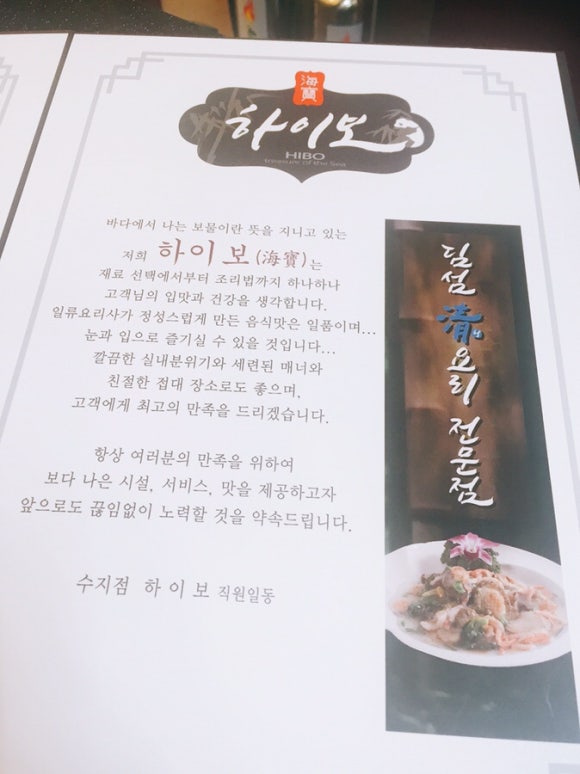 海寶
하이보
HIBO
treasure of the Sea
바다에서 나는 보물이란 뜻을 지니고 있는
저희 하이보(海寶)는
재료 선택에서부터 조리법까지 하나하나
고객님의 입맛과 건강을 생각합니다.
일류요리사가 정성스럽게 만든 음식맛은 일품이며...
눈과 입으로 즐기실 수 있을 것입니다...
깔끔한 실내분위기와 세련된 매너와
친절한 접대 장소로도 좋으며,
고객에게 최고의 만족을 드리겠습니다.
항상 여러분의 만족을 위하여
보다 나은 시설, 서비스, 맛을 제공하고자
앞으로도 끊임없이 노력할 것을 약속드립니다.
수지점 하이보 직원일동
딤섬 清요리 전문점